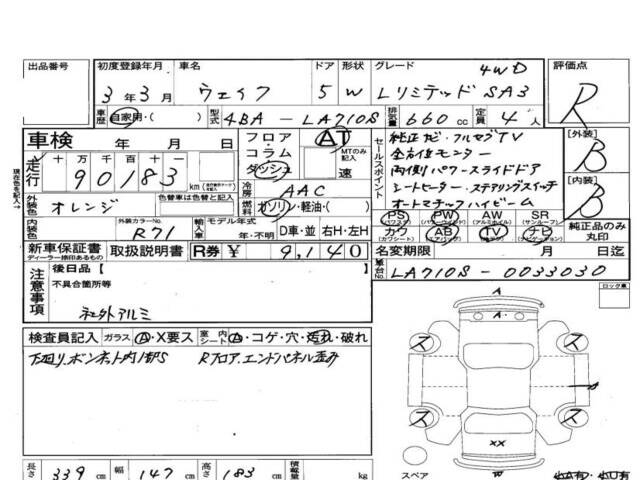 出品番号 初度登録年月 車名 ドア 形状 グレード 評価点
3年3月 ウェイク 5 W Lリミテッド SA3 4WD R
車歴 自家用・( ) 型式 4BA - LA710S 排気量 660 cc 定員 4人
車検 年 月 日 フロア・コラム・ダッシュ AT MTのみ記入 速
セールスポイント 純正ナビ・フルセグTV
全方位モニター
両側パワースライドドア
シートヒーター・ステアリングスイッチ
オートマチックハイビーム
[外装] B
[内装] B
現在色を記入→
走行 十万千百十一 90183 km
冷房 AAC
外装色 オレンジ 色替車は色替と記入 燃料 ガソリン・軽油・( )
内装色 外装カラーNo. R71 輸入車 モデル年式 年・不明 D車・並 右H・左H
PS (パワステ) PW (パワーウインド) AW (アルミホイル) SR (サンルーフ)
カワ (カワシート) AB (エアバッグ) TV (テレビ) ナビ (ナビゲーション)
純正品のみ丸印
新車保証書 ディーラー捺印あるもの 取扱説明書 R券 ¥ 9,140 名変期限 月 日迄
車台No. LA710S - 0033030
注意事項 後日品【 】
不具合箇所等
社外アルミ
ロック車
検査員記入 ガラス A・X要ス 室内シート A・コゲ・穴・汚れ・破れ
下廻り、ボンネット内サビS Rフロア、エンドパネル歪み
A
A
ス ス
S
ス ス
XX
W
長さ 339 cm 幅 147 cm 高さ 183 cm 積載量 kg
スペア